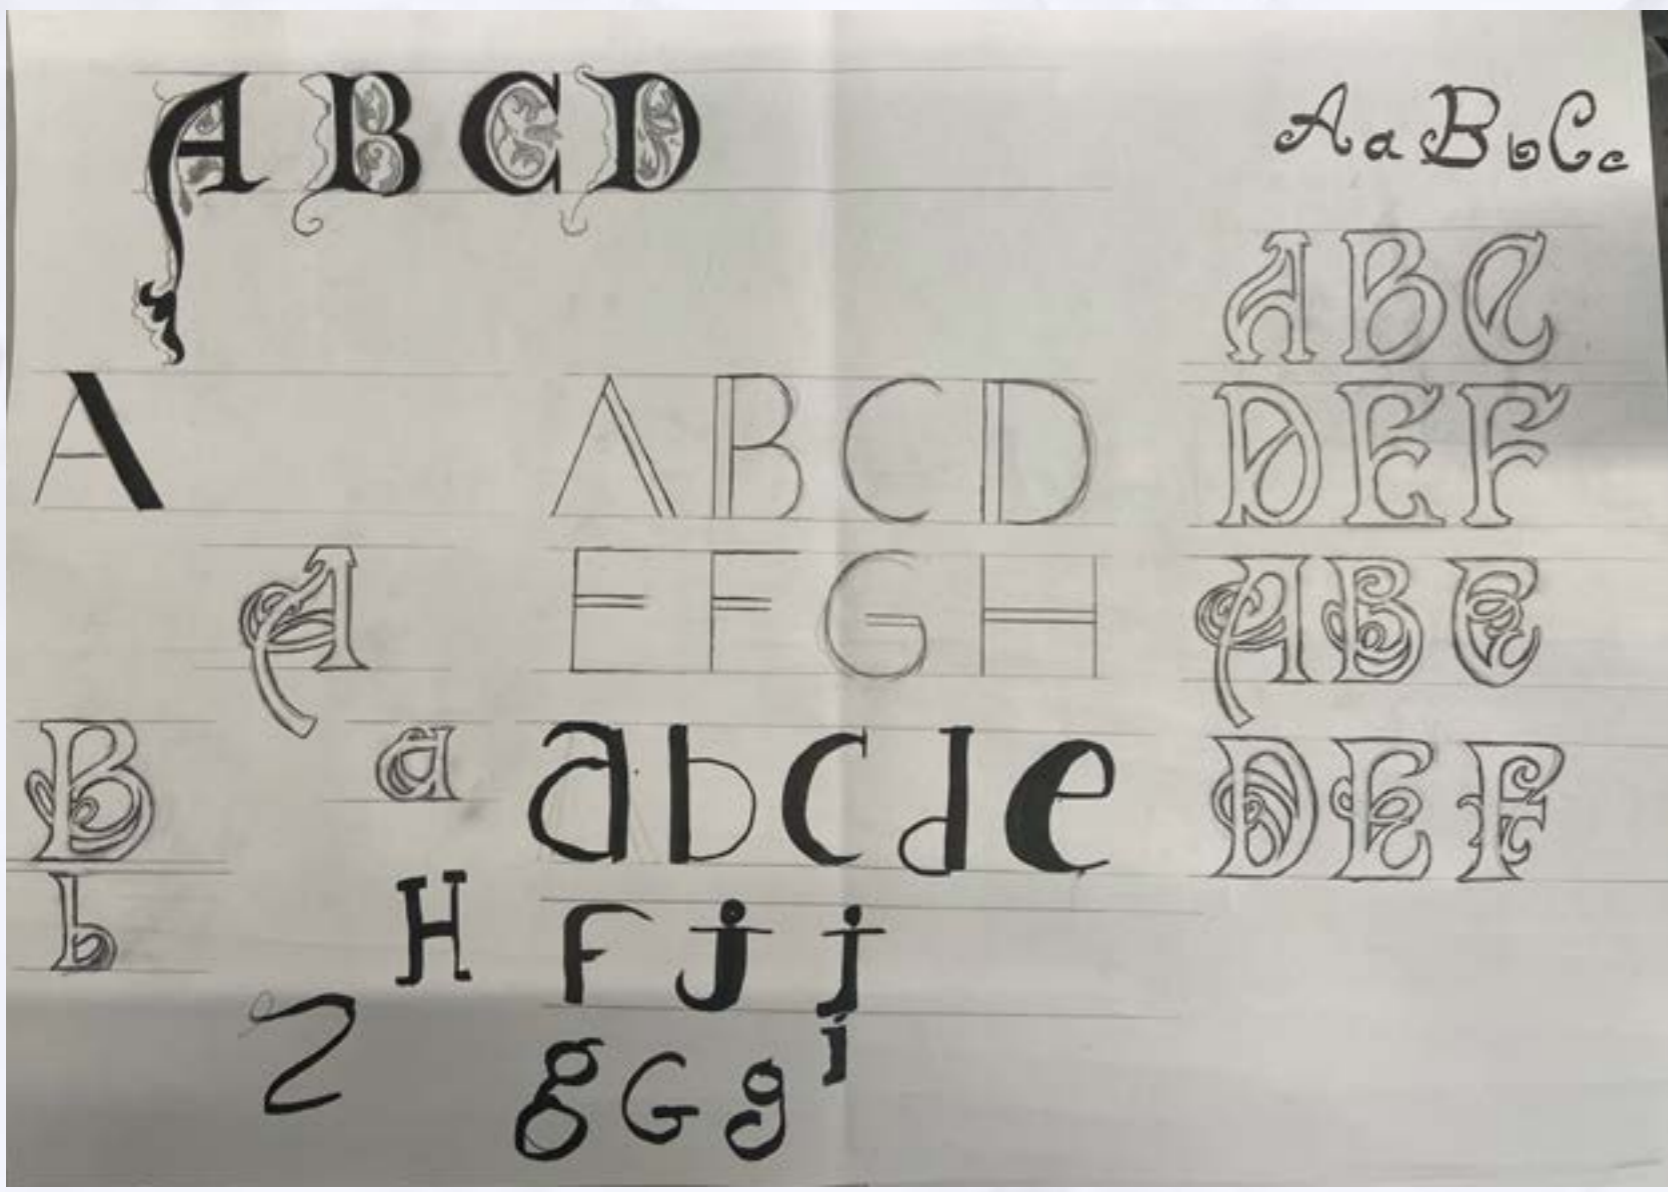 ABCD
AaBbCc
ABC
A
ABCD
DEF
A
EFGH
ABC
B
a
abcde
DEF
b
H
Fjj
i
2
gGg